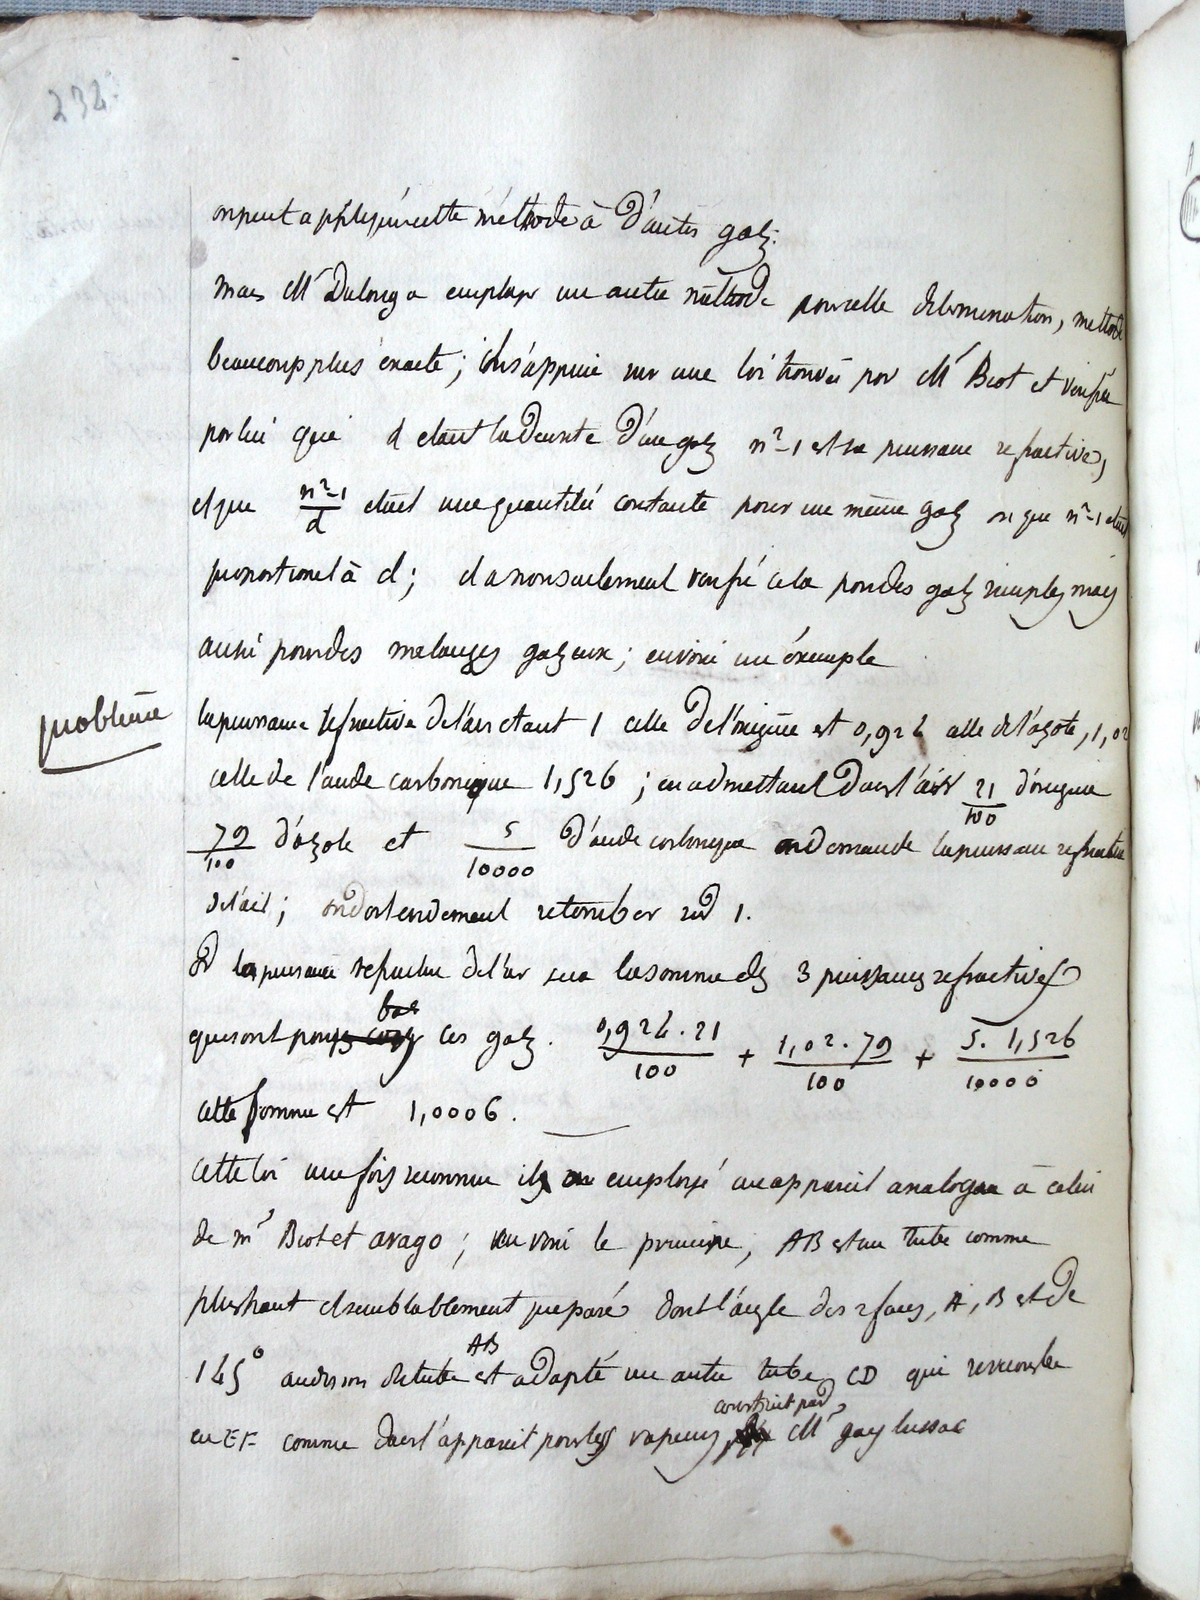 232
on peut appliquer cette méthode à d'autres gatz.
mais Mr Dulong a employé une autre méthode pour cette determination, methode
beaucoup plus éxacte; il s'appuie sur une loi trouvée par Mr Biot et verifiée
par lui que d etant la densité d'un gatz n²-1 est sa puissance refractive,
et que n²-1/d etait une quantité constante pour un même gatz ou que n²-1 etait
proportionel à d; il a non seulement verifié cela pour des gatz simples mais
aussi pour des melanges gatzeux; en voici un éxemple
problême
la puissance refractive de l'air etant 1 celle de l'oxigène est 0,924 celle de l'azote, 1,02
celle de l'acide carbonique 1,526; en admettant dans l'air 21/100 d'oxigene
79/100 d'azote et 5/10000 d'acide carbonique on demande la puissance refractive
de l'air; on doit evidemment retomber sur 1.
Or la puissance refractive de l'air sera la somme des 3 puissances refractives
que sont pour ces gatz. 0,924.21/100 + 1,02.79/100 + 5.1,526/10000
cette somme est 1,0006.
cette loi une fois reconnue il a employé un appareil analogue à celui
de mr Biot et arago; en voici le principe, AB est un tube comme
plus haut et semblablement preparé dont l'angle des 2 faces, A, B est de
145° au dessous du tube AB est adapté un autre tube CD qui se recourbe
en EF comme dans l'appareil pour les vapeurs, construit par Mr gay lussac